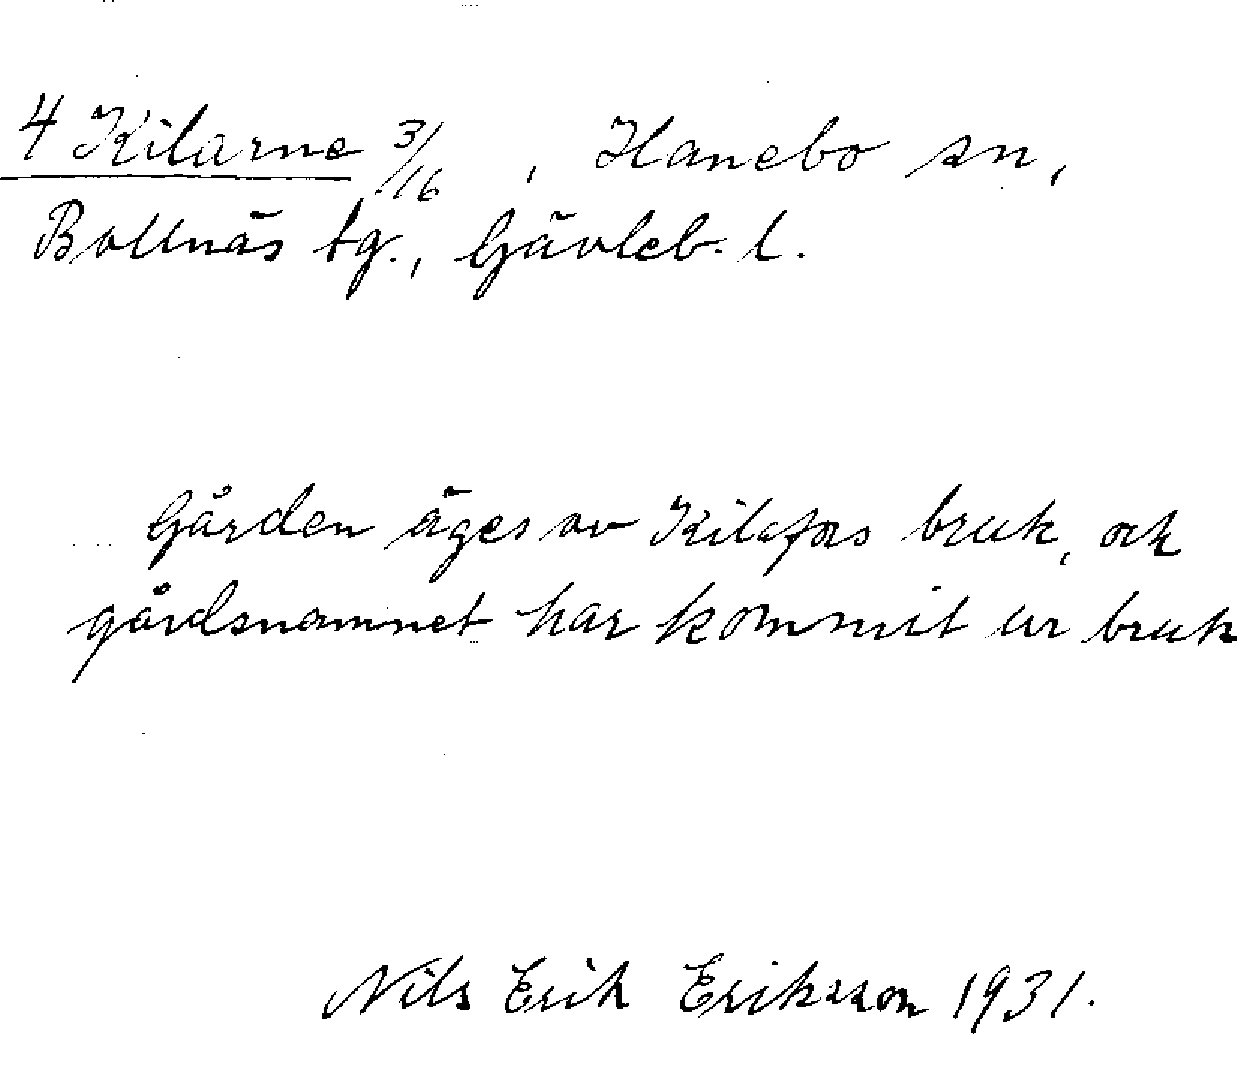 4 Kilarne 3/16, Hanebo sn,
Bollnäs tg., Gävleb. l.
Gården äges av Kilafors bruk, och
gårdsnamnet har kommit ur bruk
Nils Erik Eriksson 1931.